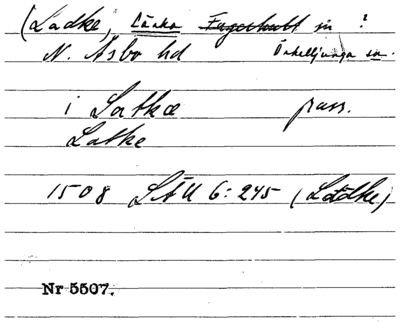 (Ladke, Länka Fagerhult sn ?
N. Åsbo hd Örkelljunga sn.
i Latkæ pass.
Latke
1508 LÄU 6:245 (Latdke)
Nr 5507.